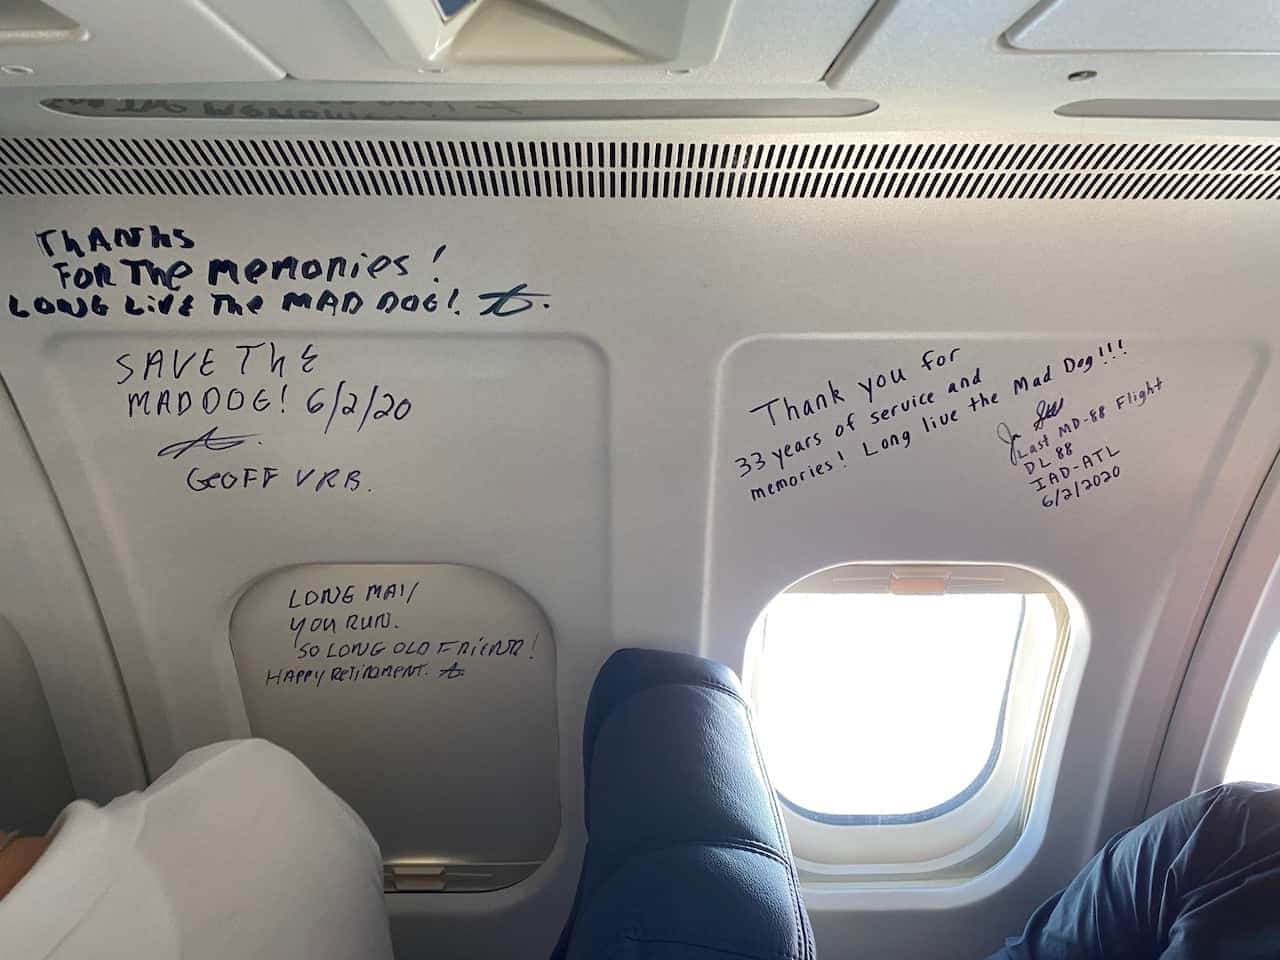 THANKS
FOR THE MEMORIES!
LONG LIVE THE MAD DOG!
SAVE THE
MADDOG! 6/2/20
GEOFF VRB.
LONG MAY
YOU RUN.
SO LONG OLD FRIEND!
HAPPY RETIREMENT.
Thank you for
33 years of service and
memories! Long live the Mad Dog!!!
Last MD-88 Flight
DL 88
IAD-ATL
6/2/2020